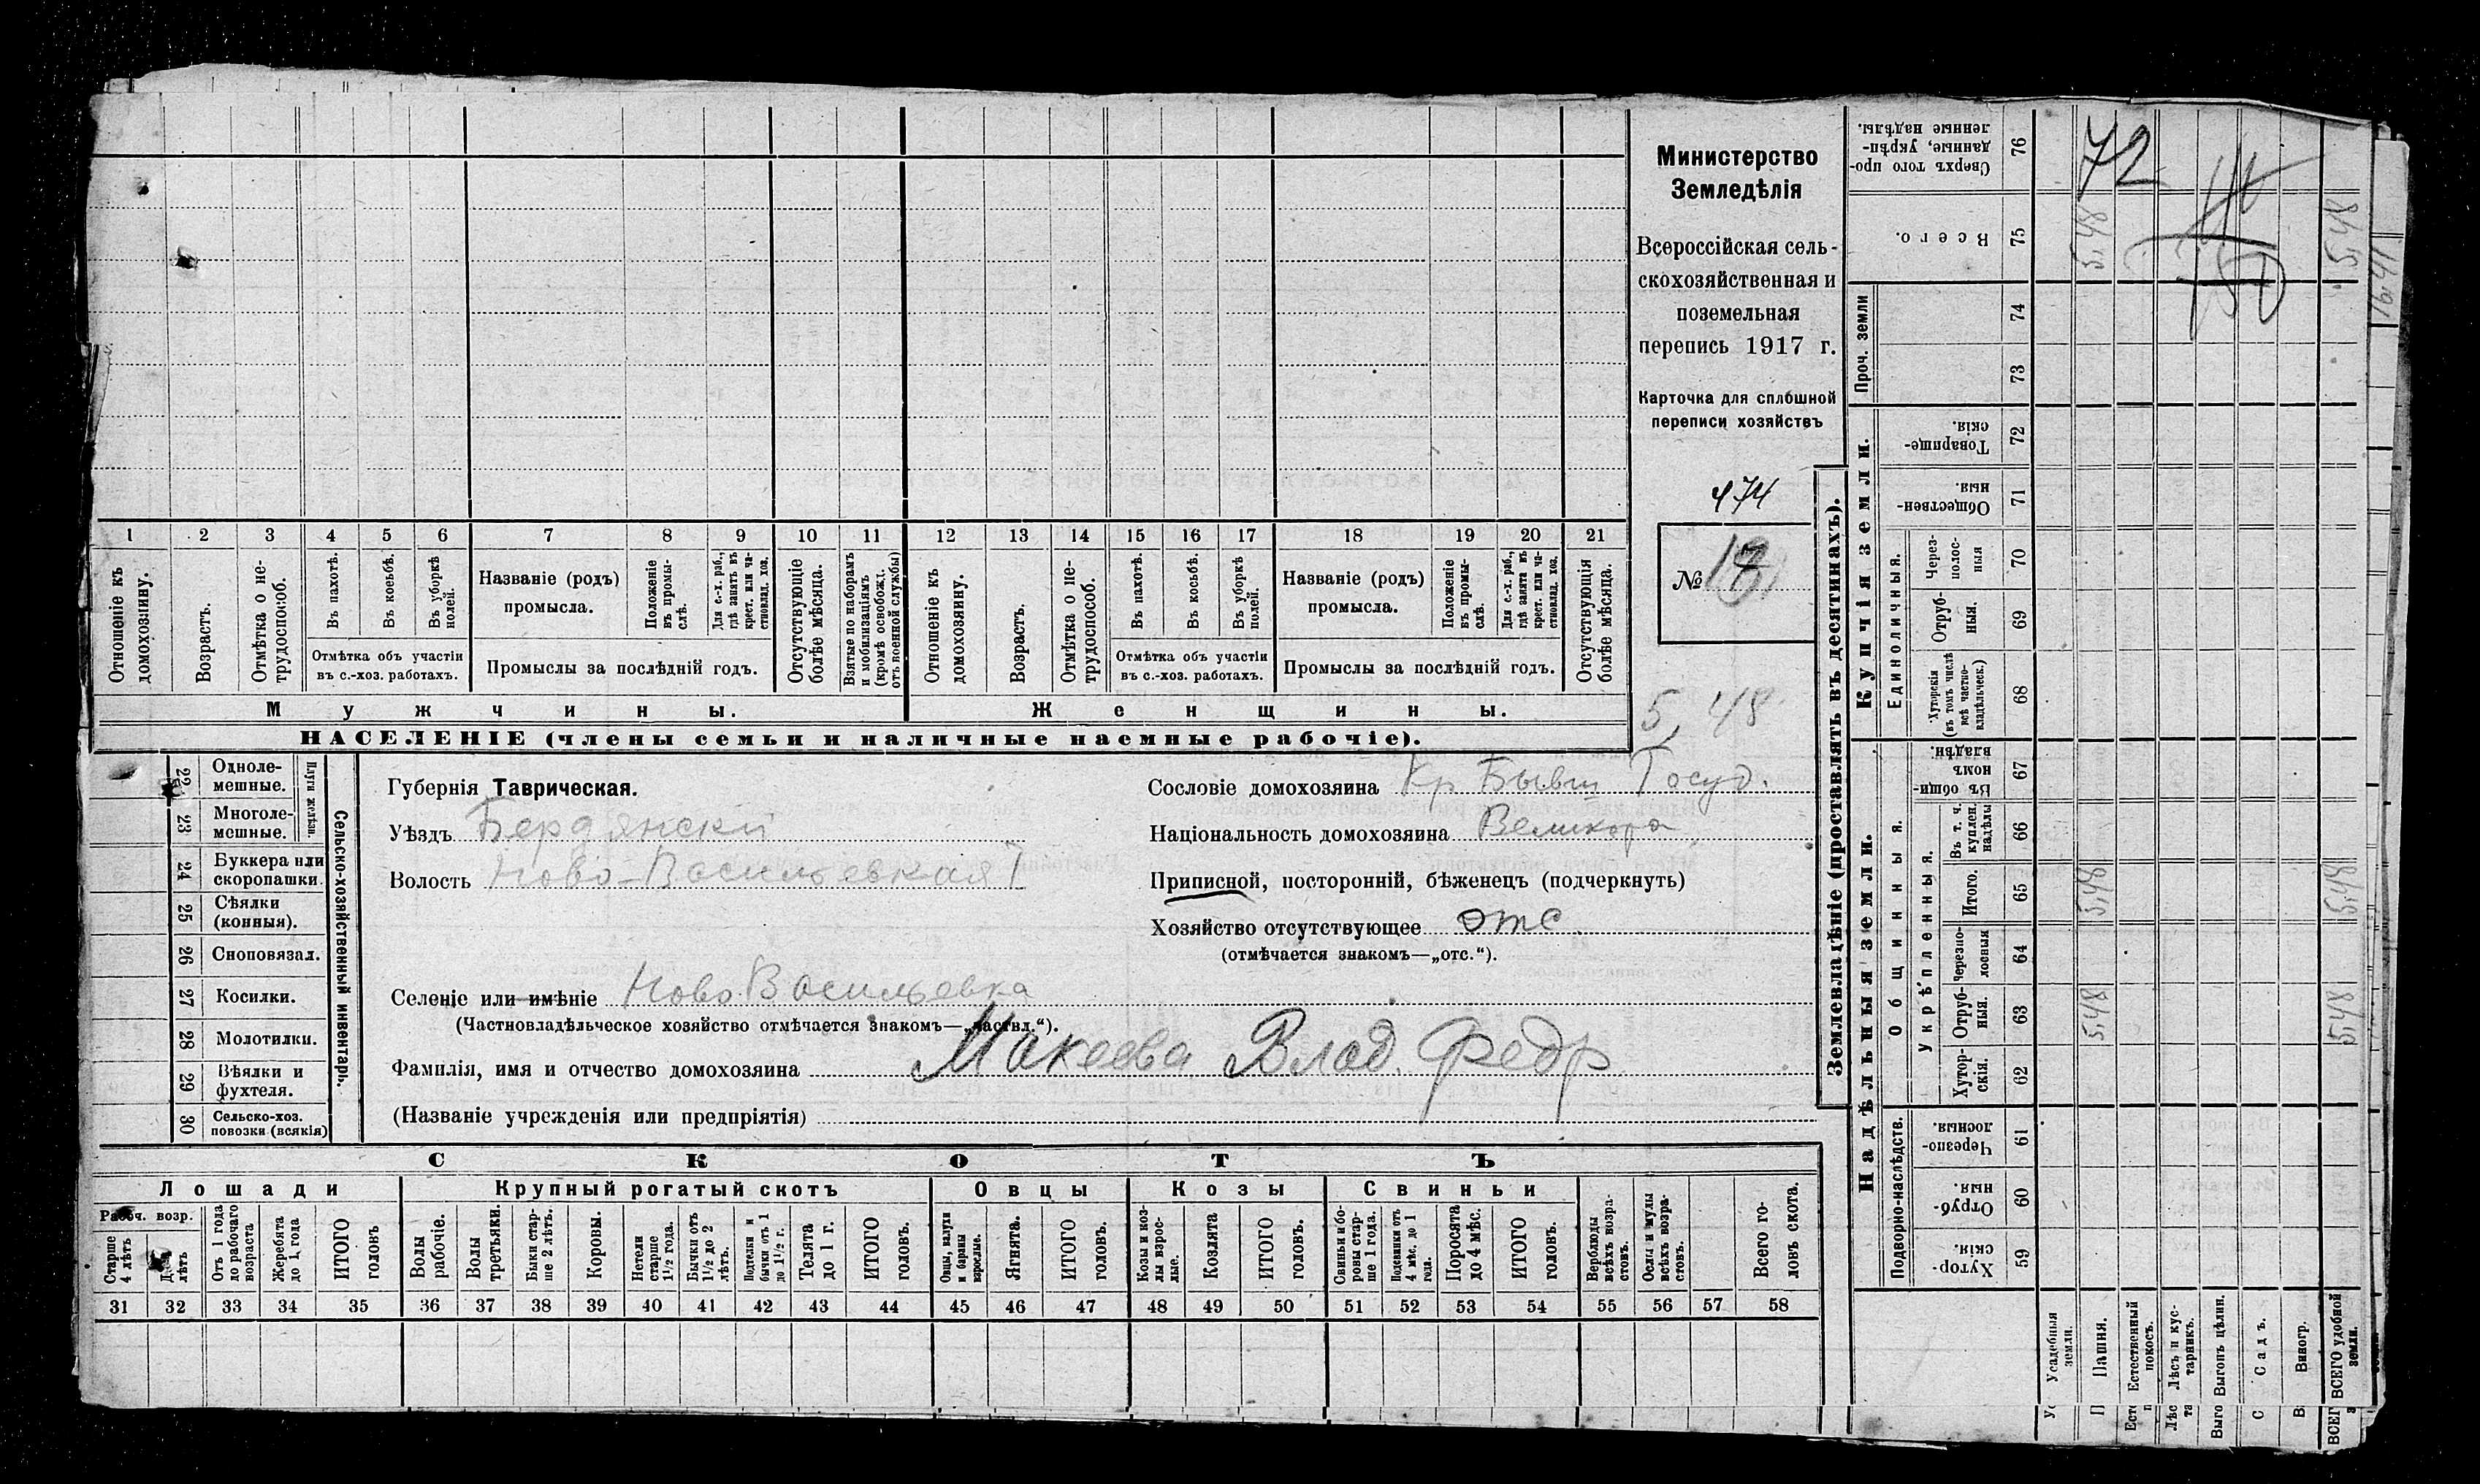 Министерство
Земледѣлія
Всероссійская сель-
скохозяйственная и
поземельная
перепись 1917 г.
Карточка для сплошной
переписи хозяйствъ
474
№
5,48
1 2 3 4 5 6 7 8 9 10 11 12 13 14 15 16 17 18 19 20 21
Отношеніе къ домохозяину.
Возрастъ.
Отмѣтка о не-трудоспособ.
Въ пахотѣ.
Въ косьбѣ.
Въ уборкѣ полей.
Отмѣтка объ участіи
въ с.-хоз. работахъ.
Названіе (родъ)
промысла.
Положеніе въ промы-слѣ.
Для с.-х. раб., гдѣ занятъ въ крест. или ча-стновлад. хоз.
Промыслы за послѣдній годъ.
Отсутствующіе болѣе мѣсяца.
Взятые по наборамъ и мобилизаціямъ (кромѣ освобожд. отъ военной службы)
Отношеніе къ домохозяину.
Возрастъ.
Отмѣтка о не-трудоспособ.
Въ пахотѣ.
Въ косьбѣ.
Въ уборкѣ полей.
Отмѣтка объ участіи
въ с.-хоз. работахъ.
Названіе (родъ)
промысла.
Положеніе въ промы-слѣ.
Для с.-х. раб., гдѣ занята въ крест. или ча-стновлад. хоз.
Промыслы за послѣдній годъ.
Отсутствующія болѣе мѣсяца.
Мужчины.
Женщины.
НАСЕЛЕНІЕ (члены семьи и наличные наемные рабочіе).
22 Одноле-мешные.
23 Многоле-мешные.
Плуги желѣзн.
24 Буккера или скоропашки.
25 Сѣялки (конныя).
26 Сноповязал.
27 Косилки.
28 Молотилки.
29 Вѣялки и фухтеля.
30 Сельско-хоз. повозки (всякія)
Сельско-хозяйственный инвентарь.
Губернія Таврическая.
Уѣздъ Бердянскій
Волость Ново-Васильевская
Сословіе домохозяина Кр Бывш Госуд.
Національность домохозяина Великоро
Приписной, посторонній, бѣженецъ (подчеркнуть)
Хозяйство отсутствующее отс
(отмѣчается знакомъ—„отс.“).
Селеніе или имѣніе Ново Васильевка
(Частновладѣльческое хозяйство отмѣчается знакомъ—„частвл.“).
Фамилія, имя и отчество домохозяина Макеева Влад. Федр
(Названіе учрежденія или предпріятія)
СКОТЪ
Лошади
Крупный рогатый скотъ
Овцы
Козы
Свиньи
Рабоч. возр.
Старше 4 лѣтъ
лѣтъ
Отъ 1 года до рабочаго возраста
Жеребята до 1 года
ИТОГО головъ
Волы рабочіе.
Волы третьяки.
Быки стар-ше 2 лѣтъ.
Коровы.
Нетели старше 1½ года.
Бычки отъ 1½ до 2 лѣтъ.
Подтелки и бычки отъ 1 до 1½ г.
Телята до 1 г.
ИТОГО головъ.
Овцы, валухи и бараны взрослые.
Ягнята.
ИТОГО головъ.
Козы и коз-лы взрос-лые.
Козлята
ИТОГО головъ.
Свиньи и бо-ровы стар-ше 1 года.
Подсвинки отъ 4 мѣс. до 1 года.
Поросята до 4 мѣс.
ИТОГО головъ.
Верблюды всѣхъ возра-стовъ.
Ослы и мулы всѣхъ возра-стовъ.
Всего го-ловъ скота.
31 32 33 34 35 36 37 38 39 40 41 42 43 44 45 46 47 48 49 50 51 52 53 54 55 56 57 58
Землевладѣніе (проставлять въ десятинахъ).
Сверхъ того про-данные, укрѣп-ленные надѣлы. 76
72
Всего. 75
5,48
5,48
Проч. земли
74
73
Купчія земли.
Товарище-скія. 72
Обществен-ныя. 71
Единоличныя.
Через-полос-ныя 70
Отруб-ныя. 69
Хуторскія (въ томъ числѣ всѣ частно-владѣльческ.) 68
Надѣльныя земли.
Общинныя.
Въ общи-номъ владѣн. 67
Укрѣпленныя.
Въ т. ч. куплен. надѣлы 66
Итого. 65
5,48
5,48
Черезпо-лосныя 64
Отруб-ныя. 63
5,48
5,48
Хутор-скія. 62
Подворно-наслѣдств.
Черезпо-лосныя. 61
Отруб-ныя. 60
Хутор-скія. 59
Усадебныя земли.
Пашня.
Естественный покосъ.
Лѣсъ и кус-тарникъ.
Выгонъ цѣлин.
Садъ.
Виногр.
ВСЕГО удобной земли.